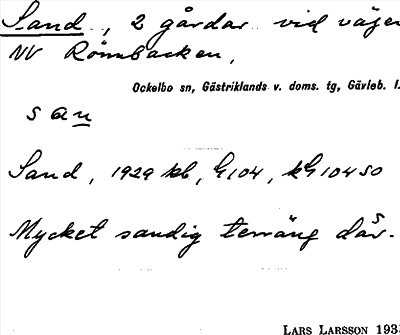 Sand, 2 gårdar vid vägen
NV Rönnbacken,
Ockelbo sn, Gästriklands v. doms. tg, Gävleb. l.
san
Sand, 1929 kb, G104, kG104 SO
Mycket sandig terräng där.
LARS LARSSON 193